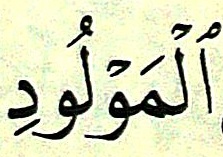 ٱلۡمَوۡلُودِ